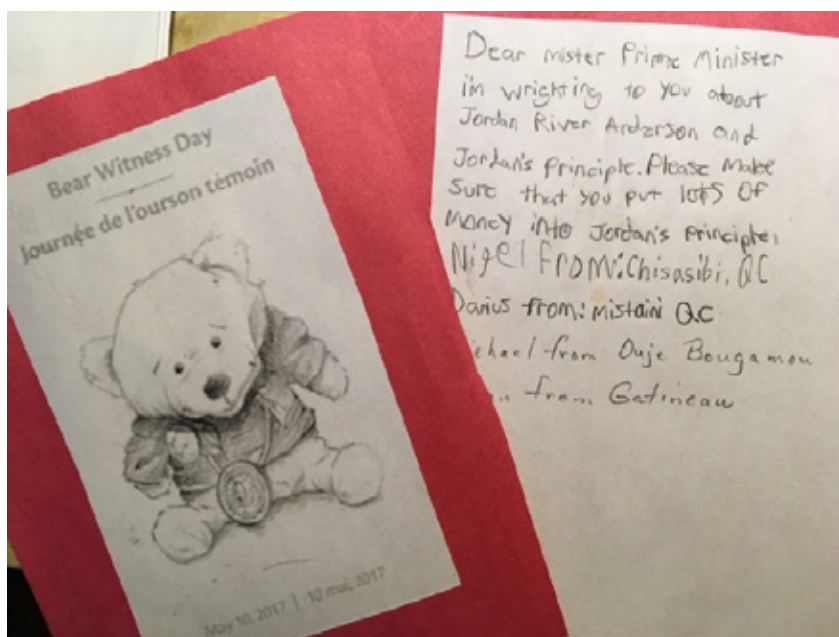 Bear Witness Day
Journée de l'ourson témoin
May 10, 2017 | 10 mai, 2017
Dear mister Prime Minister
i'm wrighting to you about
Jordan River Anderson and
Jordan's Principle. Please make
Sure that you put lots of
Money into Jordan's principle,
Nigel From: Chisasibi, QC
Darius from: mistain QC
from Ouje Bougamou
from Gatineau